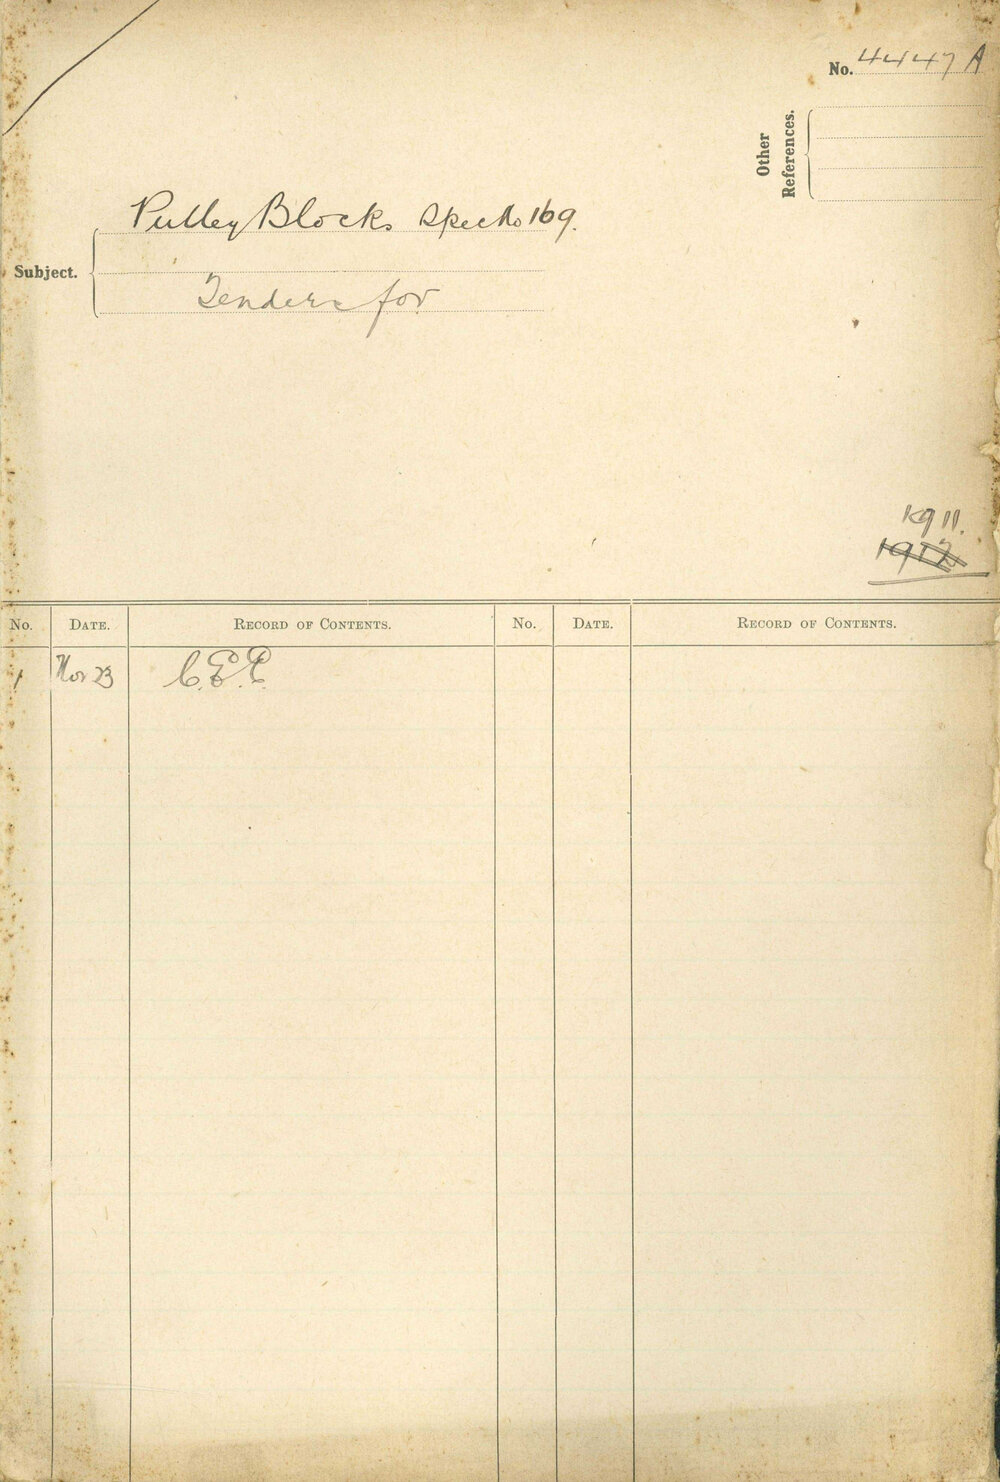 No. 4447 A
Other
References.
Pulley Blocks Spec No 169.
Subject.
Tenders for
1911.
1912
No. DATE. RECORD OF CONTENTS. No. DATE. RECORD OF CONTENTS.
1 Nov 23 C.E.P.